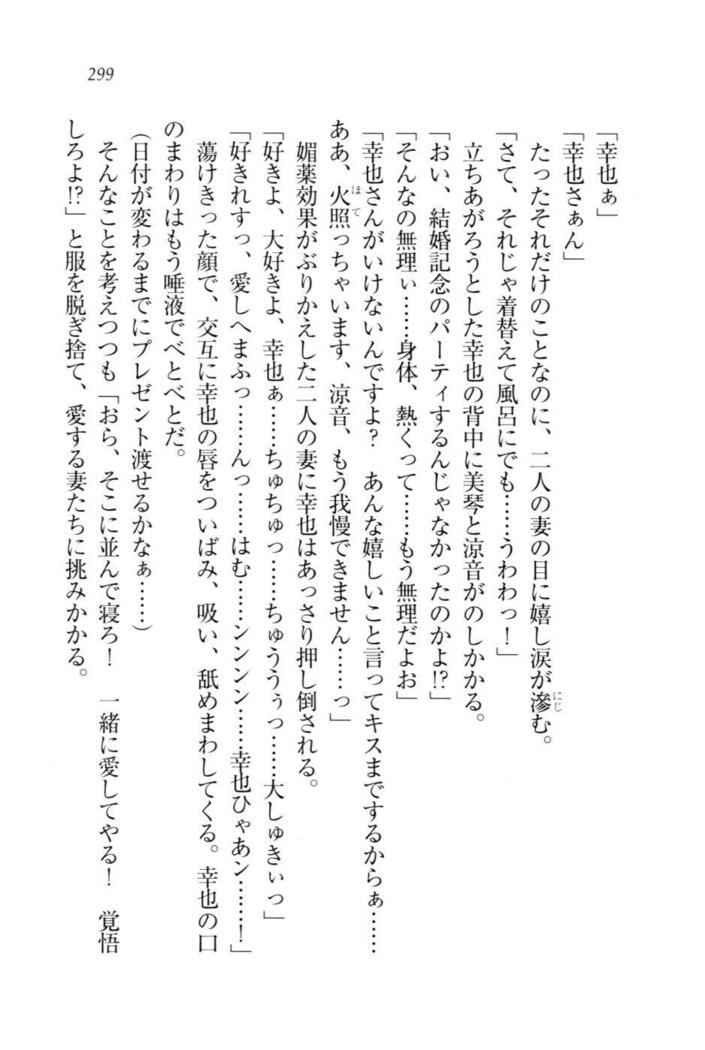 299
「幸也ぁ」
「幸也さぁん」
たったそれだけのことなのに、二人の妻の目に嬉し涙が滲む。
「さて、それじゃ着替えて風呂にでも……うわわっ！」
立ちあがろうとした幸也の背中に美琴と涼音がのしかかる。
「おい、結婚記念のパーティするんじゃなかったのかよ!?」
「そんなの無理ぃ……身体、熱くって……もう無理だよお」
「幸也さんがいけないんですよ？　あんな嬉しいこと言ってキスまでするからぁ……
ああ、火照っちゃいます、涼音、もう我慢できません……っ」
媚薬効果がぶりかえした二人の妻に幸也はあっさり押し倒される。
「好きよ、大好きよ、幸也ぁ……ちゅちゅっ……ちゅううぅっ……大しゅきぃっ」
「好きれすっ、愛しへまふっ……んっ……はむ……シンンン……幸也ひゃあン……！」
蕩けきった顔で、交互に幸也の唇をついばみ、吸い、舐めまわしてくる。幸也の口
のまわりはもう唾液でべとべとだ。
（日付が変わるまでにプレゼント渡せるかなぁ……）
そんなことを考えつつも「おら、そこに並んで寝ろ！　一緒に愛してやる！　覚悟
しろよ!?」と服を脱ぎ捨て、愛する妻たちに挑みかかる。